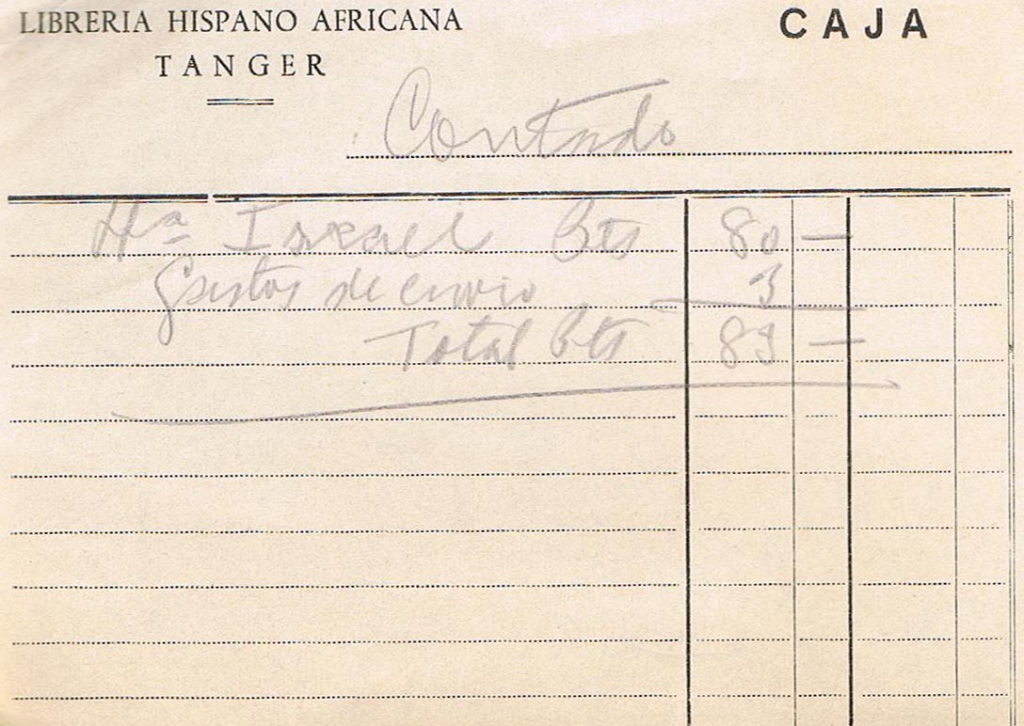 LIBRERIA HISPANO AFRICANA
TANGER
CAJA
Contado
Hª Israel Pts 80 —
Gastos de envio 3
Total Pts 83 —